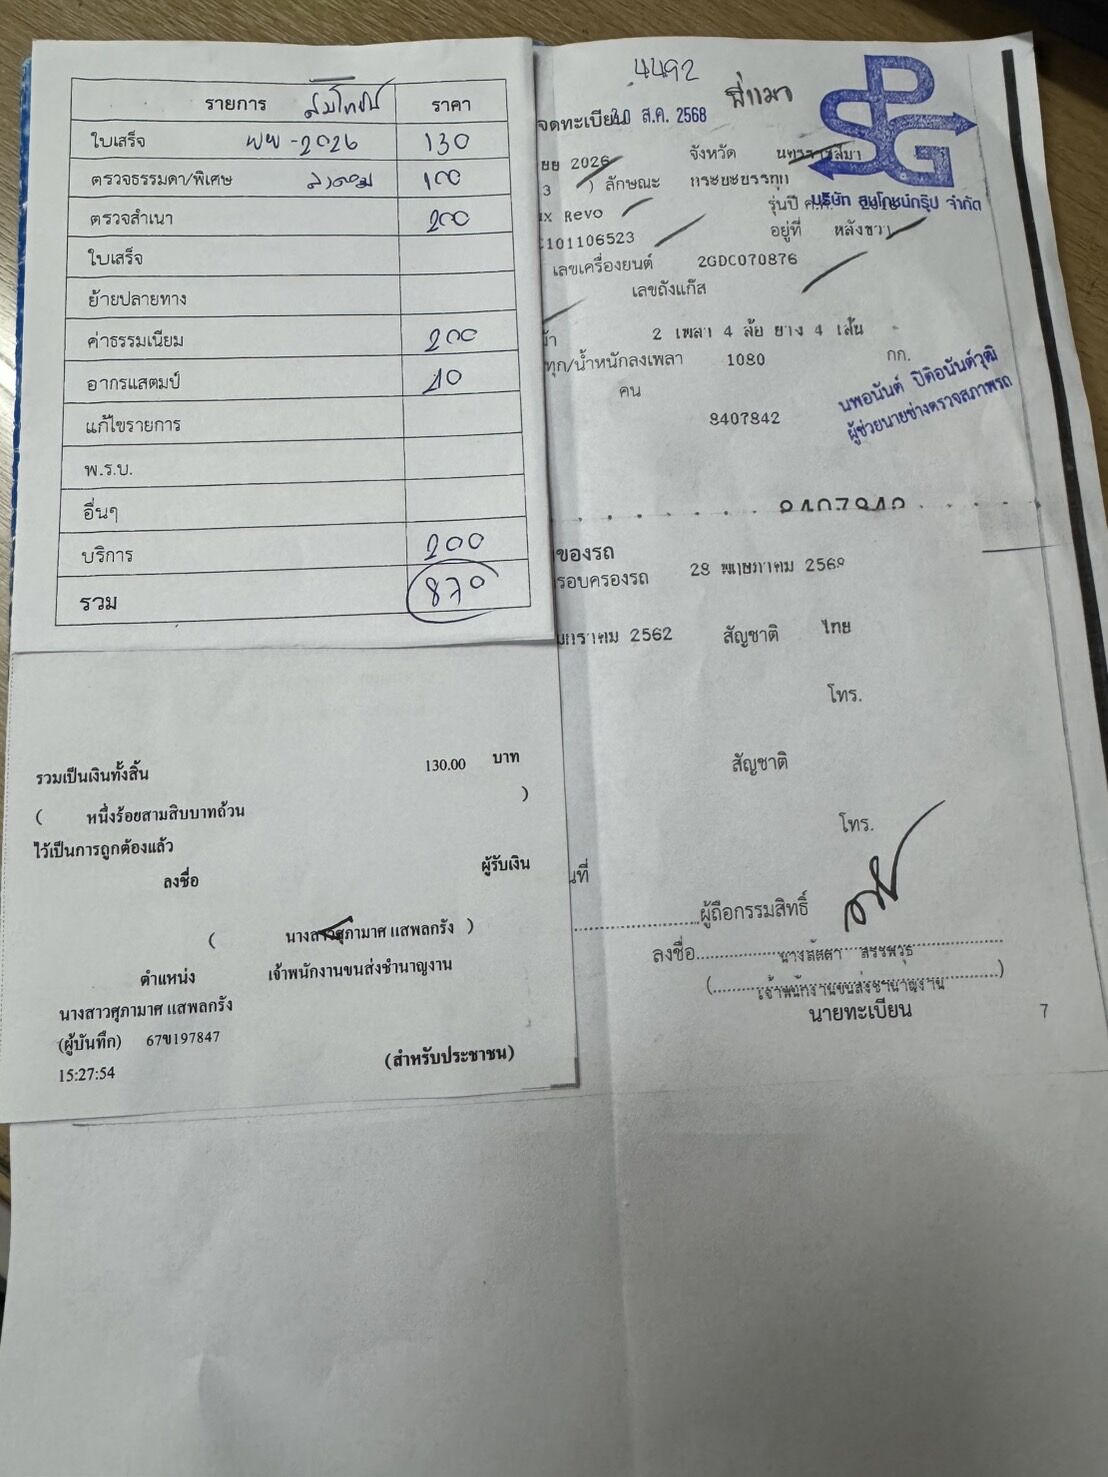 รายการ สมโภชน์ ราคา
ใบเสร็จ ผผ - 2026 130
ตรวจธรรมดา/พิเศษ 100
ตรวจสำเนา 200
ใบเสร็จ
ย้ายปลายทาง
ค่าธรรมเนียม 200
อากรแสตมป์ 40
แก้ไขรายการ
พ.ร.บ.
อื่นๆ
บริการ 200
รวม 870
รวมเป็นเงินทั้งสิ้น 130.00 บาท
( หนึ่งร้อยสามสิบบาทถ้วน )
ไว้เป็นการถูกต้องแล้ว
ลงชื่อ ผู้รับเงิน
( นางสาวศุภามาศ แสพลกรัง )
ตำแหน่ง เจ้าพนักงานขนส่งชำนาญงาน
นางสาวศุภามาศ แสพลกรัง
(ผู้บันทึก) 67ข197847
15:27:54 (สำหรับประชาชน)
4492
จดทะเบียน 20 ส.ค. 2568
2026 จังหวัด นครราชสีมา
3 ) ลักษณะ กระบะบรรทุก
บริษัท สมโภชน์กรุ๊ป จำกัด
x Revo รุ่นปี ค.ศ.
101106523 อยู่ที่ หลังขวา
เลขเครื่องยนต์ 2GDC070876
เลขถังแก๊ส
2 เพลา 4 ล้อ ยาง 4 เส้น
ทุก/น้ำหนักลงเพลา 1080 กก.
คน
นพอนันต์ ปิติอนันต์วุฒิ
ผู้ช่วยนายช่างตรวจสภาพรถ
8407842
8407842
ของรถ
รอบครองรถ 28 พฤษภาคม 2569
มกราคม 2562 สัญชาติ ไทย
โทร.
สัญชาติ
โทร.
นที่
ผู้ถือกรรมสิทธิ์
ลงชื่อ นางลัดดา สรรพวุธ
( เจ้าพนักงานขนส่งชำนาญงาน )
นายทะเบียน
7